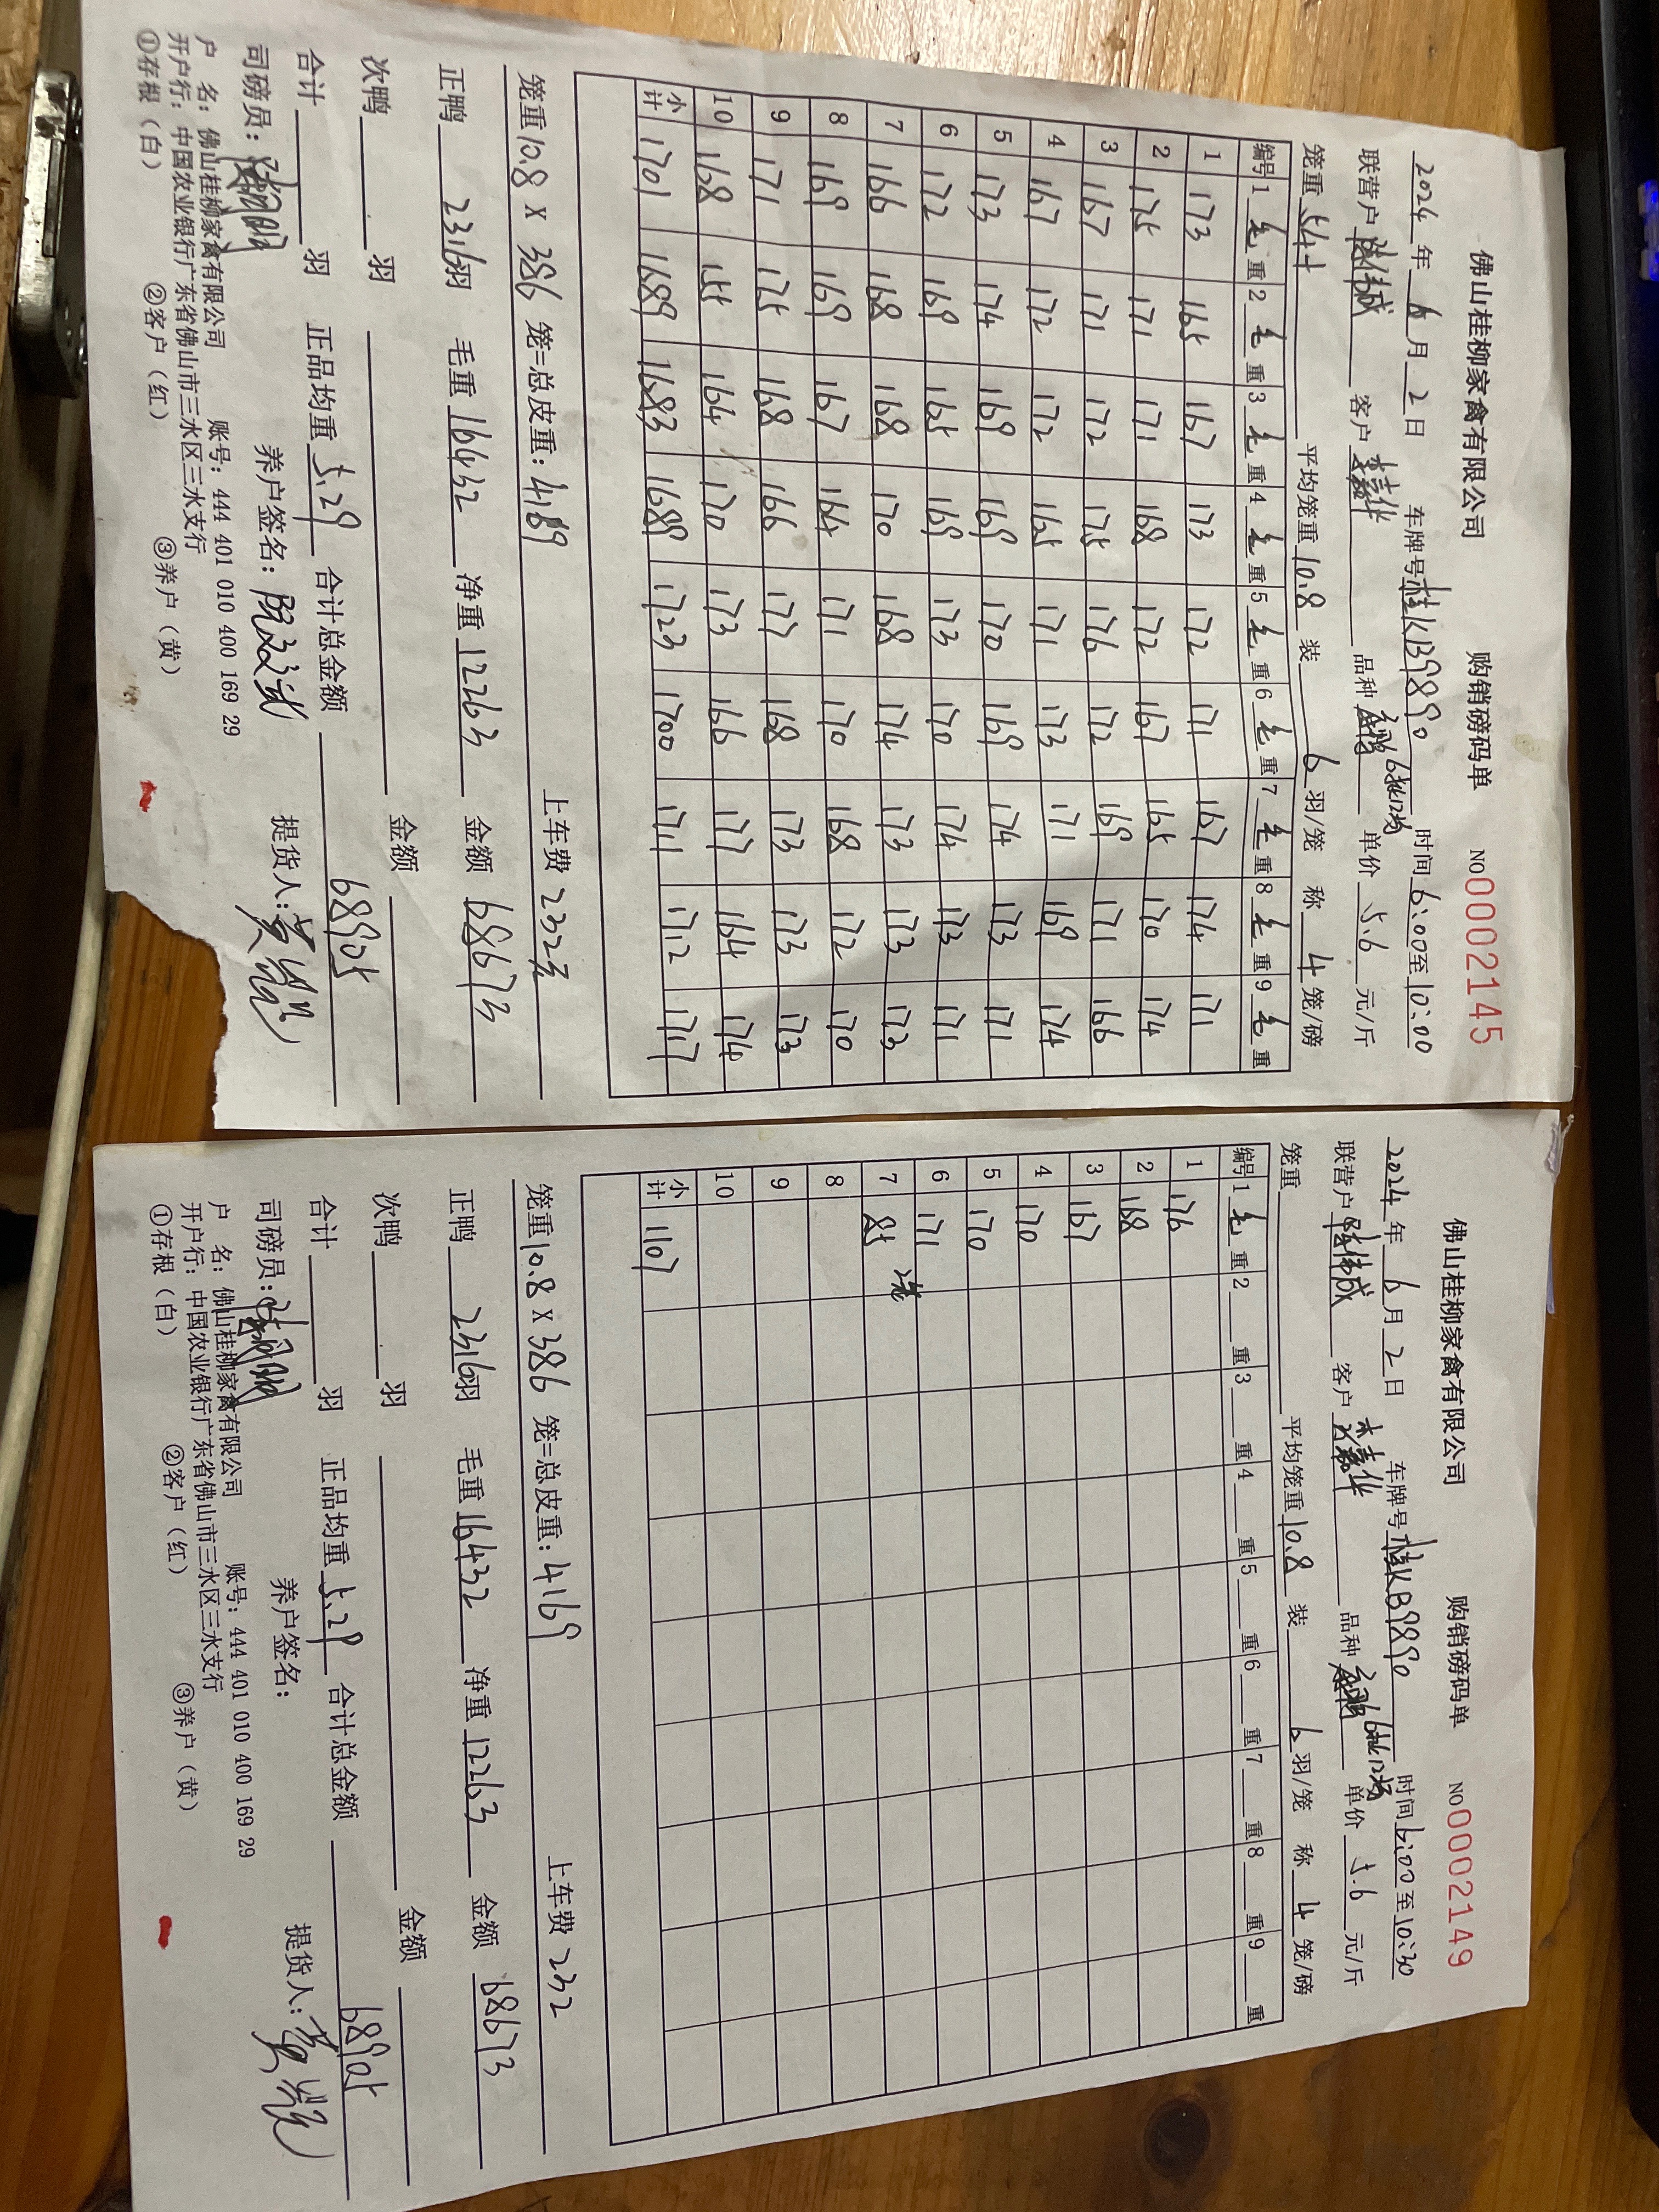 佛山桂柳家禽有限公司 购销磅码单 NO0002145
2024年6月2日 车牌号桂KB9890 时间6:00至10:00
联营户 客户 李嘉华 品种 单价5.6元/斤
笼重544 平均笼重10.8 装6羽/笼 称4笼/磅
编号 1毛重 2毛重 3毛重 4毛重 5毛重 6毛重 7毛重 8毛重 9毛重
1 173 165 167 173 172 171 167 174 171
2 175 171 171 168 172 167 165 170 174
3 167 171 172 175 176 172 169 171 166
4 167 172 172 165 171 173 171 169 174
5 173 174 169 169 170 169 174 173 171
6 172 169 165 169 173 170 174 173 171
7 166 168 168 170 168 174 173 173 173
8 169 169 167 164 171 170 168 172 170
9 171 175 168 166 177 168 173 173 173
10 168 155 164 170 173 166 177 164 174
小计 1701 1689 1683 1689 1723 1700 1711 1712 1717
笼重10.8 X 386 笼=总皮重：4169 上车费 232元
正鸭 2316羽 毛重 16432 净重 12263 金额 68673
次鸭 羽 金额
合计 羽 正品均重 5.29 合计总金额 68905
司磅员： 养户签名： 提货人：
户 名：佛山桂柳家禽有限公司 账号：444 401 010 400 169 29
开户行：中国农业银行广东省佛山市三水区三水支行
①存根（白） ②客户（红） ③养户（黄）
佛山桂柳家禽有限公司 购销磅码单 NO0002149
2024年6月2日 车牌号桂KB9890 时间6:00至10:30
联营户 陈伟成 客户 李嘉华 品种 单价5.6元/斤
笼重 平均笼重10.8 装6羽/笼 称4笼/磅
编号 1毛重 2 重 3 重 4 重 5 重 6 重 7 重 8 重 9 重
1 176
2 168
3 167
4 170
5 170
6 171
7 85 2笼
8
9
10
小计 1107
笼重10.8 X 386 笼=总皮重：4169 上车费 232
正鸭 2316羽 毛重 16432 净重 12263 金额 68673
次鸭 羽 金额
合计 羽 正品均重 5.29 合计总金额 68905
司磅员： 养户签名： 提货人：
户 名：佛山桂柳家禽有限公司 账号：444 401 010 400 169 29
开户行：中国农业银行广东省佛山市三水区三水支行
①存根（白） ②客户（红） ③养户（黄）